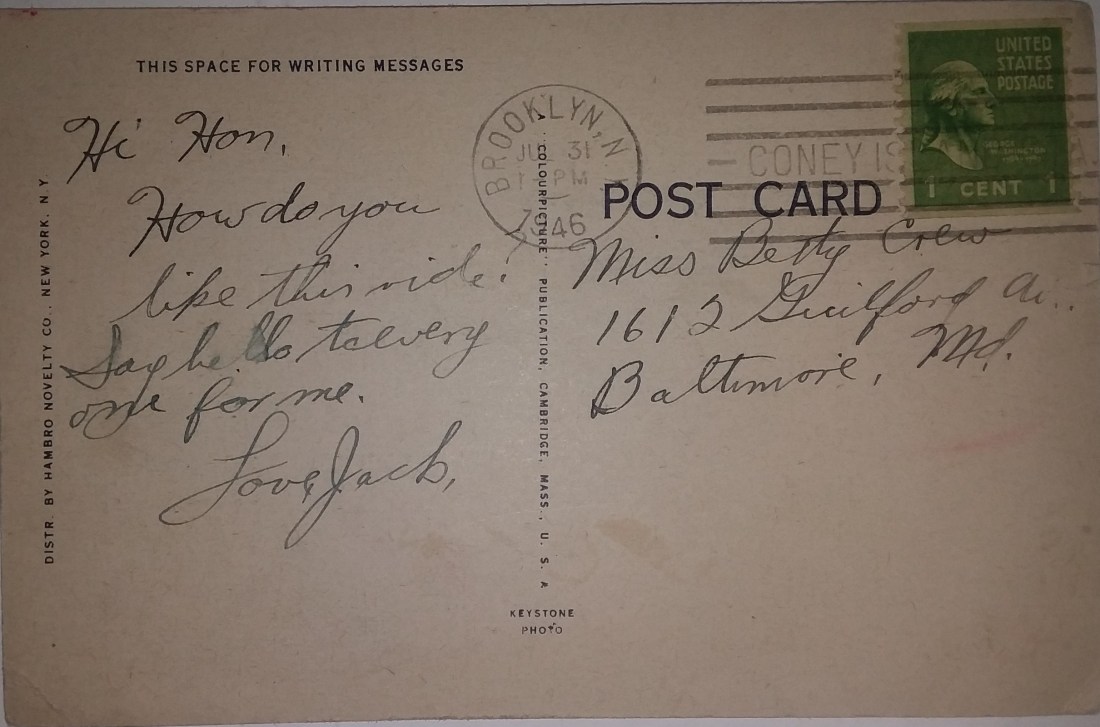 THIS SPACE FOR WRITING MESSAGES
Hi Hon,
How do you
like this ride?
Say hello to every
one for me.
Love, Jack,
DISTR. BY HAMBRO NOVELTY CO., NEW YORK, N.Y.
A "COLOURPICTURE" PUBLICATION, CAMBRIDGE, MASS., U. S. A
KEYSTONE
PHOTO
BROOKLYN, N
31
PM
1946
CONEY
UNITED
STATES
POSTAGE
GEORGE
WASHINGTON
1 CENT 1
POST CARD
Miss Betty Crew
1612 Guilford
Baltimore, Md.